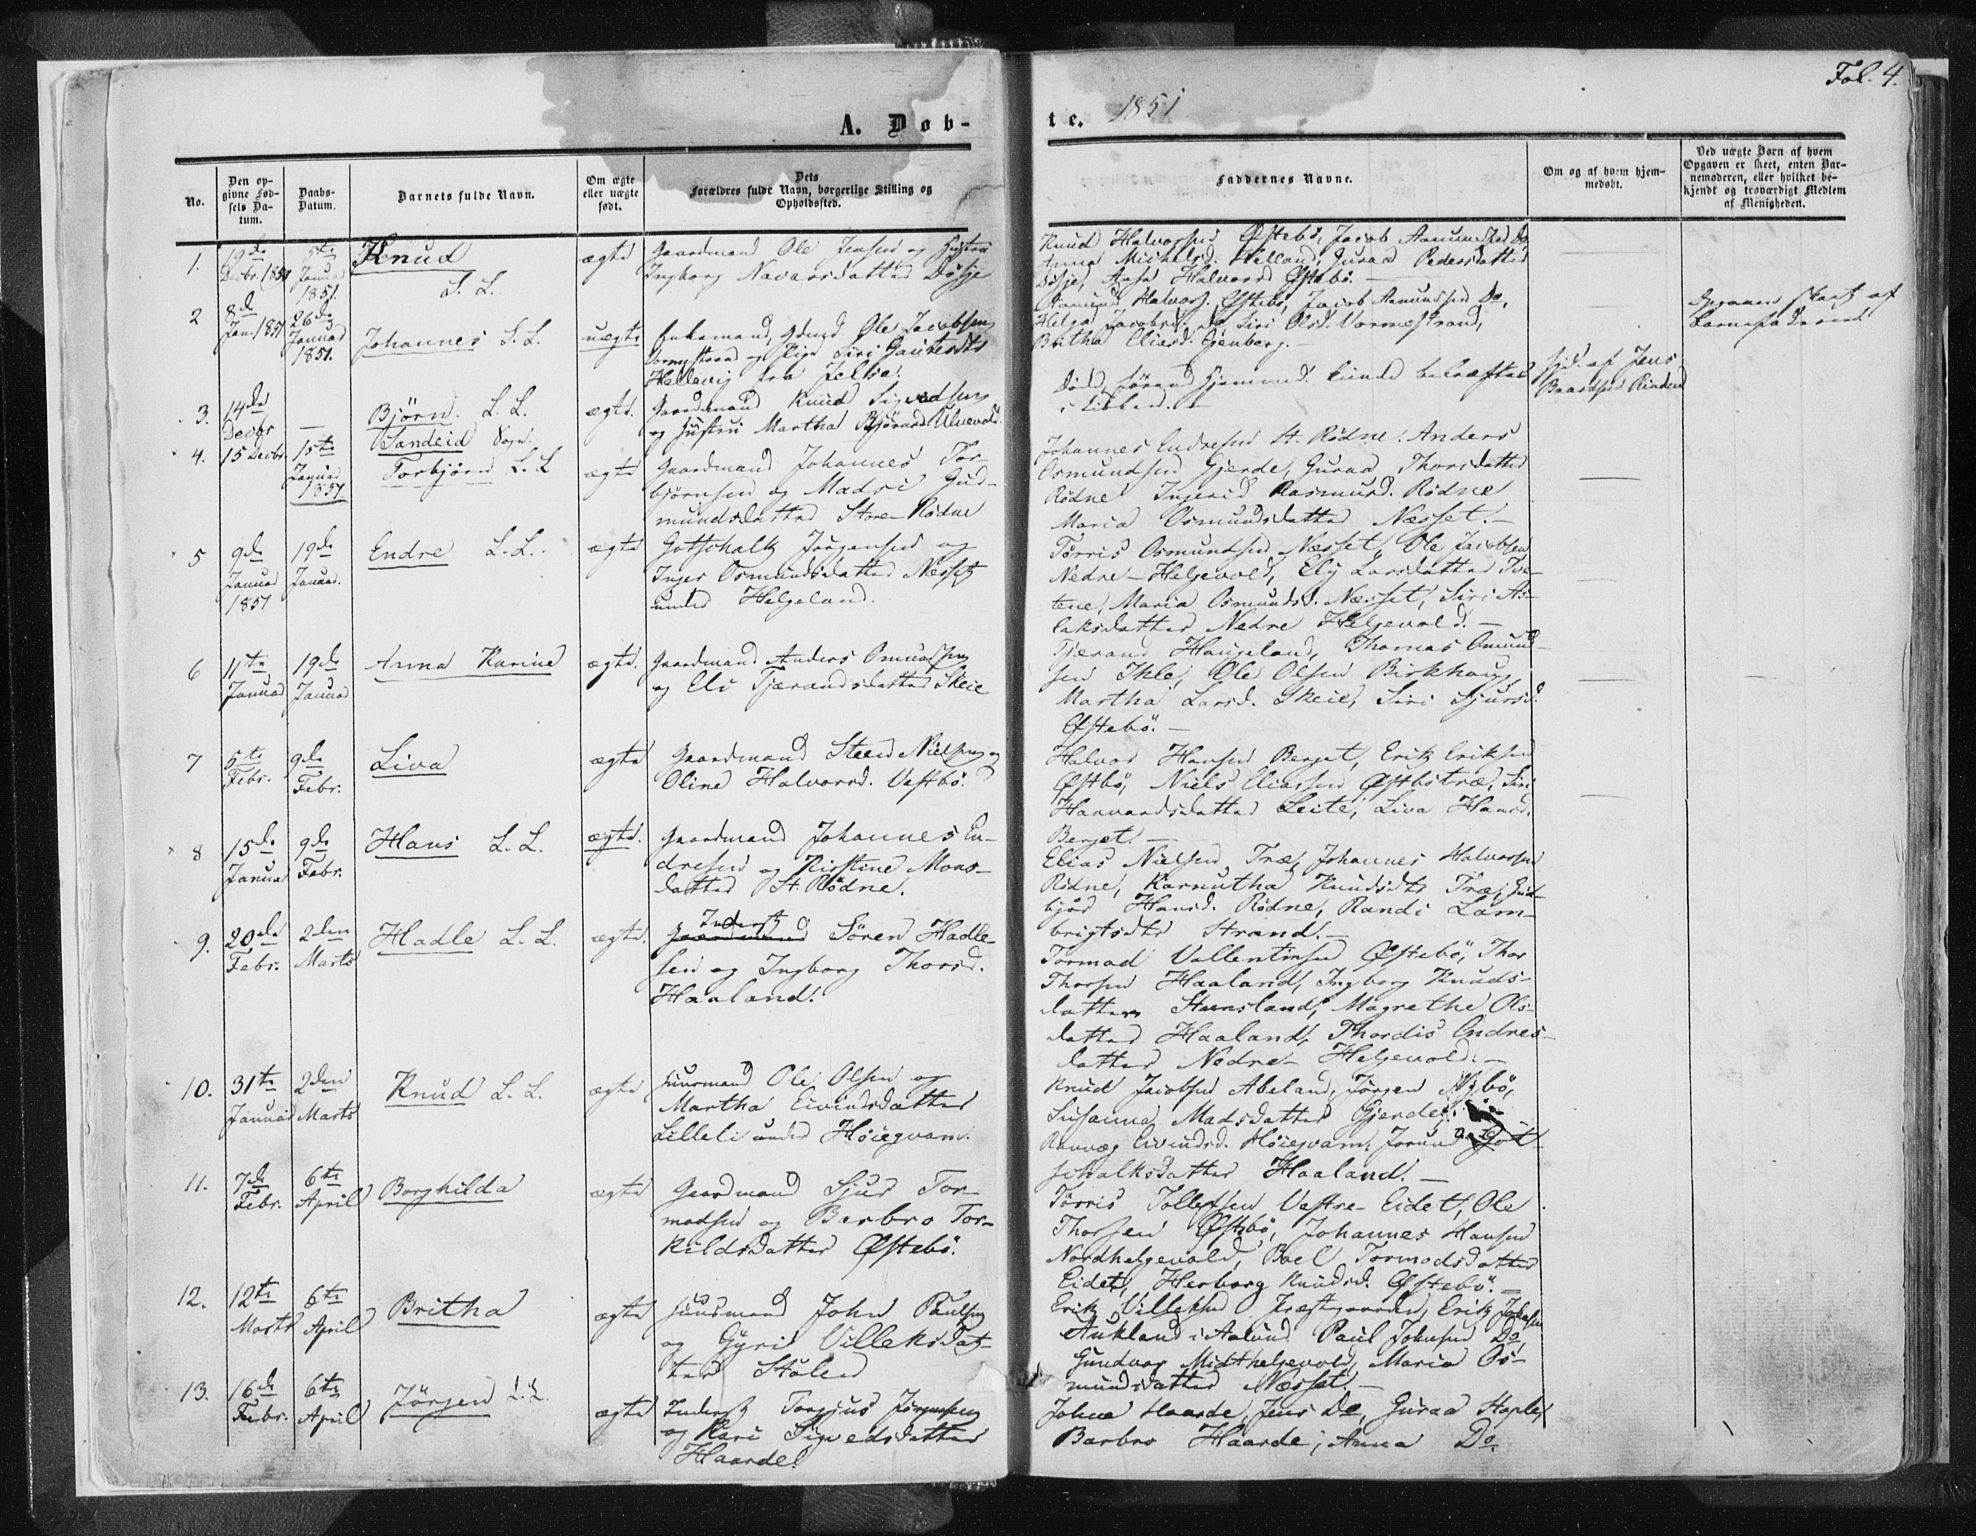 Fol. 4.
A. Døb-
te. 1851
No.
Den op-
givne Fød-
sels Da-
tum.
Daabs-
Datum.
Barnets fulde Navn.
Om ægte
eller uægte
født.
Dets
Forældres fulde Navn, borgerlige Stilling og
Opholdssted.
Faddernes Navne.
Om og af hvem hjem-
medøbt.
Ved uægte Børn af hvem
Opgaven er skeet, enten Bar-
nemoderen, eller hvilket be-
kjendt og troværdigt Medlem
af Menigheden.
1.
19de
Decbr. 1850
5te
Januar
1851.
Knud
ægte
Gaardmand Ole Jensen og Hustru
Ingborg Navarsdatter Døsje
Knud Halvorsen Østebö, Jacob Aamundsen Do,
Anna Michelsd. Helland, Guraa Pedersdatter
Døsje, Halvorsd. Østebö. —
2
8de
Jan. 1851
26de
Januar
1851.
Johannes L. L.
uægte
Enkemand, Ole Jacobsen
og Pige Siri Gautesdtr
Hellevig fra Jelse.
Aamund Halvors. Østebö, Jacob Aamundsen Do,
Helga Jacobsd. Do, Siri Olsd. Vormestrand,
Britha Eliasd. Egenberg. —
Opgaven skeet af
Barnefaderen
3.
14de
Decbr
—
Björn. L. L.
ægte.
Gaardmand Knud Sigvedsen
og Hustru Martha Björnsd. Ulvevold.
Døde, førend Hjemmed. kunde bekræftes
i Kirken. —
Hjd. af Jens
Baardsen Rinden
Sandeid Sogn.
4.
15 Decbr.
15te
Januar
1851
Torbjörn L. L
ægte
Gaardmand Johannes Tor-
björnsen og Madsi Gud-
mundsdatter Store-Rödne
Johannes Endresen St. Rödne, Anders
Osmundsen Gjerde, Guraa Thorsdatter
Rödne, Ingerid Rasmusd. Rödne
Maria Osmundsdatter Næsset. —
5
9de
Januar
1851
19de
Januar.
Endre L. L.
ægte
Gotschalk Jörgensen og
Inger Osmundsdatter Nesset
under Helgeland.
Törris Osmundsen Næsset, Ole Jacobsen
Nedre-Helgevold, Ely Larsdatter Tve-
tene, Maria Osmundsd. Næsset, Siri As-
laksdatter Nedre Helgevold. —
6
11te
Januar
19de
Januar
Anna Karine
ægte.
Gaardmand Anders Omundsen
og Eli Tjærandsdatter Skeie
Tjærand Haugeland, Thomas Omund-
sen Ikle, Ole Olsen Birkhaug,
Martha Larsd. Skeie, Siri Sjursd.
Østebö. —
7
5te
Febr.
9de
Febr.
Liva
ægte
Gaardmand Steen Nielsen og
Oline Halvorsd. Vestbö.
Halvor Hansen Berget, Erik Eriksen
Østbö, Niels Eliassen Østbötræ, Siri
Havardsdatter Leite, Liva Hansd.
Berget. —
8
15de
Januar
9de
Febr.
Hans L. L.
ægte.
Gaardmand Johannes En-
dresen og Kirstine Mons-
datter St. Rödne.
Elias Nielsen Træ, Johannes Halvorsen
Rödne, Karnutha Knudsdtr Træ, Gud-
björ Hansd. Rödne, Randi Lam-
brigtsdtr Strand. —
9.
20de
Febr.
2den
Marts
Hadle L. L.
ægte.
Inderst
Gaardmand Sören Hadle-
sen og Ingborg Thorsd.
Haaland.
Tormod Vallentinsen Østebö, Thor
Thorsen Haaland, Ingborg Knuds-
datter Stensland, Magrethe Ols-
datter Haaland, Thordis Endres-
datter Nedre- Helgevold. —
10.
31te
Januar
2den
Marts
Knud L. L.
ægte
Huusmand Ole Olsen og
Martha Eivindsdatter
Lilleli under Höiegvam.
Knud Jacobsen Abeland, Jörgen Nybö,
Susanna Madsdatter Gjerde,
Rannveg Eivindsd. Höiegvam, Jorund Got-
schalksdatter Haaland. —
11.
7de
Febr.
6te
April
Borghilda
ægte
Gaardmand Sjur Tor-
modsen og Barbro Tor-
kildsdatter Østebö.
Törris Tollefsen Vestre-Eidet, Ole
Thorsen Østebö, Johannes Hansen
Nordhelgevold, Boel Tormodsdatter
Eidet, Herborg Knudsd. Østebö. —
12.
12te
Marts
6te
April
Britha
ægte
Huusmand John Paulsen
og Gyri Villeksdat-
ter Stölen
Erik Villeksen Præstgaarden, Erik Johnsen
Aukland i Aalund, Paul Johnsen Do
Gundvor Midthelgevold, Maria Os-
mundsdatter Næsset. —
13.
16de
Febr.
6te
April
Jörgen L. L.
ægte
Inderst Torgius Jörgensen
og Kari Sigvedsdatter
Haarde.
Johne Haarde, Jens Do, Guraa
Barbro Haarde, Anna Do.